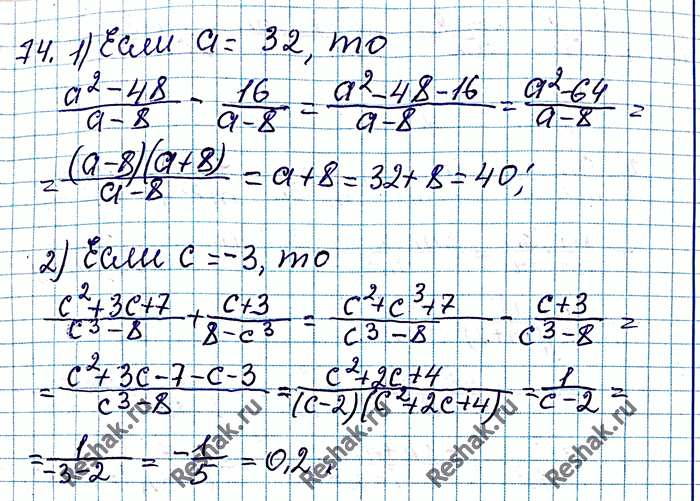 74. 1) Если a = 32, то
(a² - 48)/(a - 8) - 16/(a - 8) = (a² - 48 - 16)/(a - 8) = (a² - 64)/(a - 8) =
= ((a - 8)(a + 8))/(a - 8) = a + 8 = 32 + 8 = 40;
2) Если c = -3, то
(c² + 3c + 7)/(c³ - 8) + (c + 3)/(8 - c³) = (c² + c³ + 7)/(c³ - 8) - (c + 3)/(c³ - 8) =
= (c² + 3c - 7 - c - 3)/(c³ - 8) = (c² + 2c + 4)/((c - 2)(c² + 2c + 4)) = 1/(c - 2) =
= 1/(-3 - 2) = -1/5 = 0,2.
Reshak.ru Reshak.ru Reshak.ru Reshak.ru